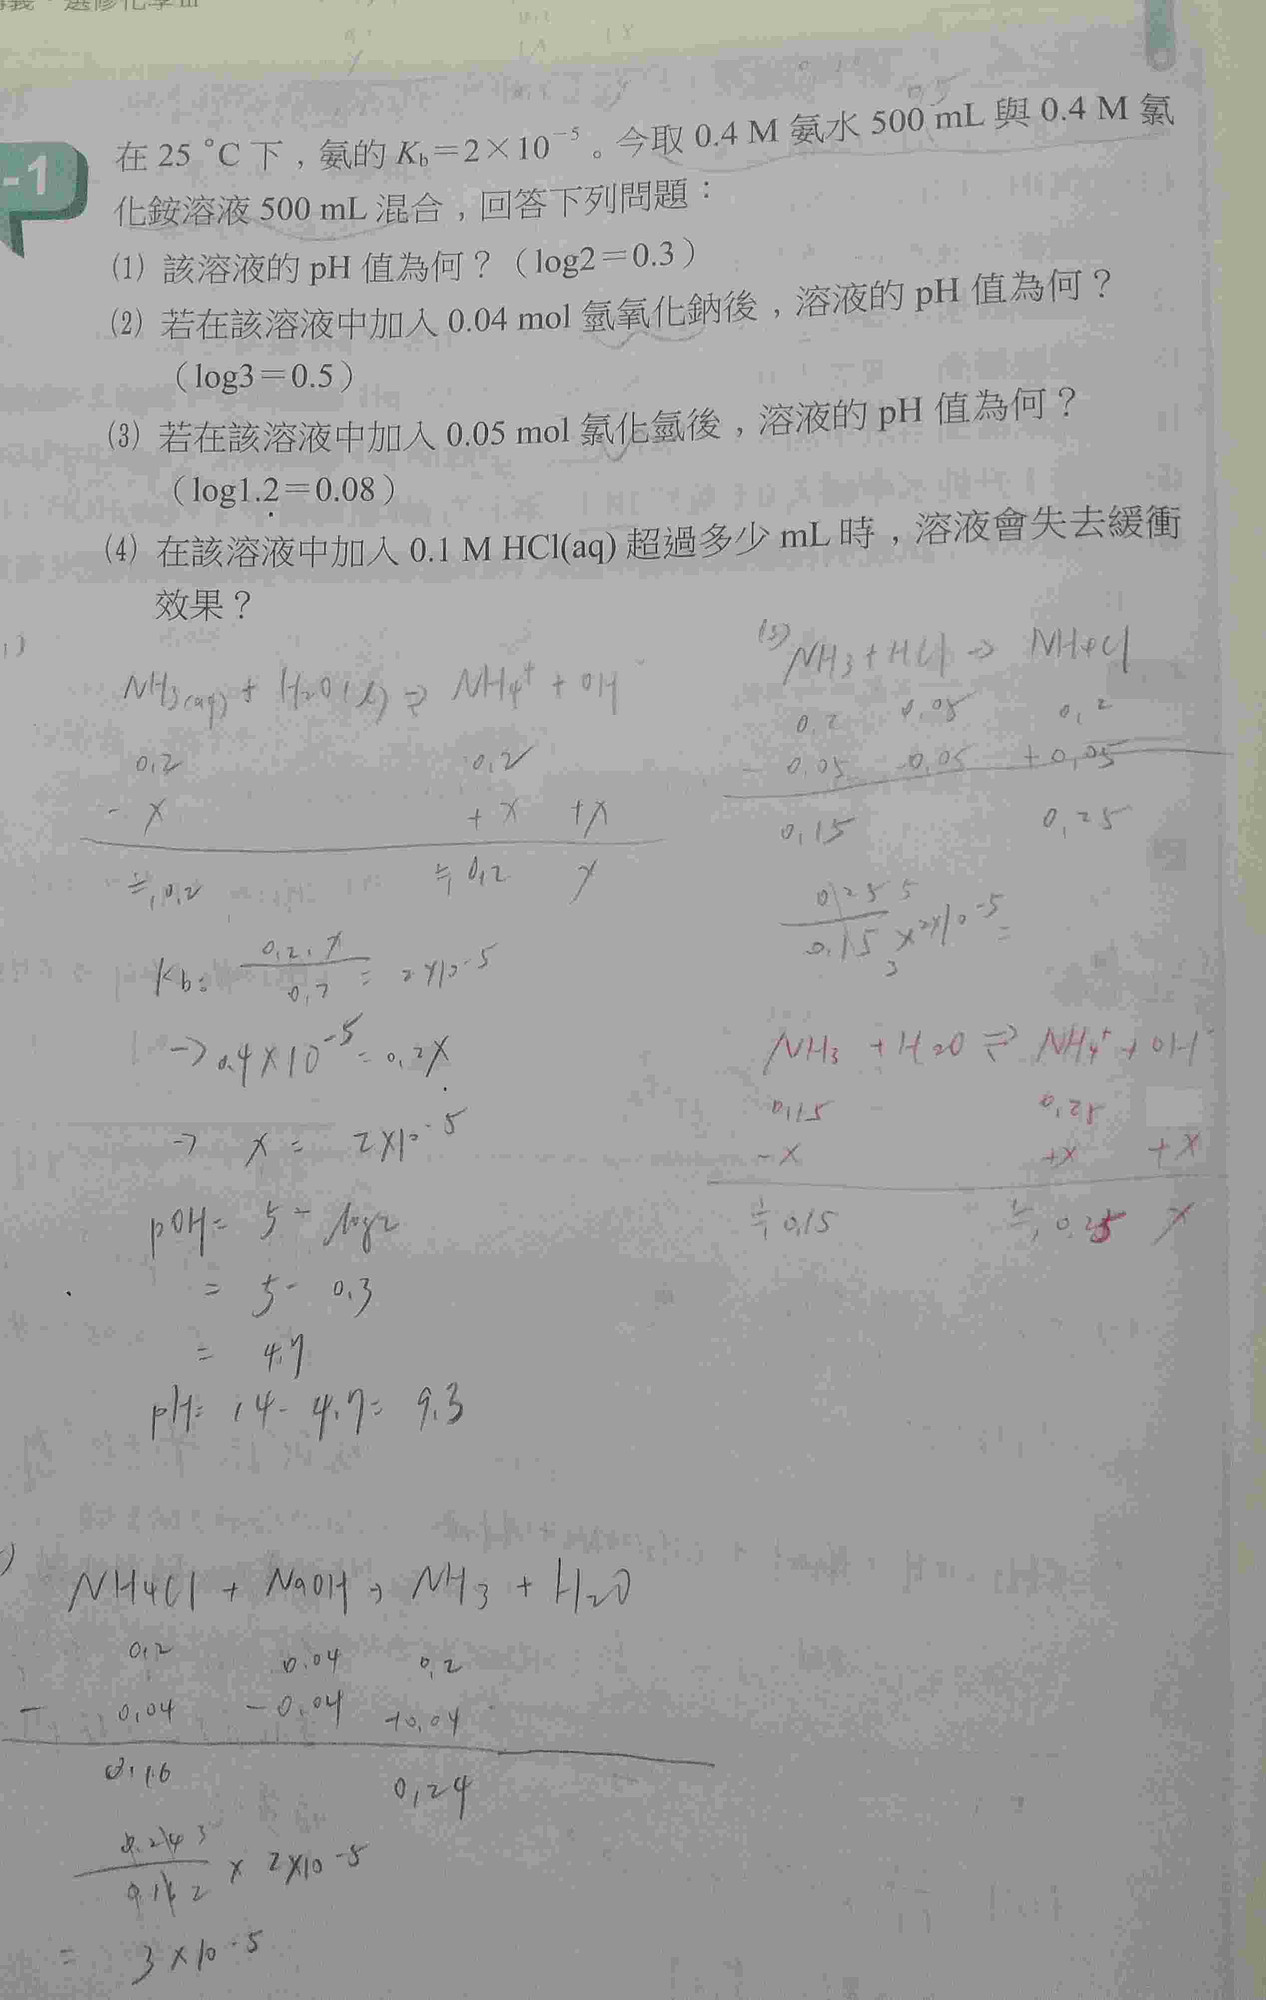 選修化學III
-1
在 25 °C 下，氨的 Kb＝2×10⁻⁵。今取 0.4 M 氨水 500 mL 與 0.4 M 氯
化銨溶液 500 mL 混合，回答下列問題：
⑴ 該溶液的 pH 值為何？（log2＝0.3）
⑵ 若在該溶液中加入 0.04 mol 氫氧化鈉後，溶液的 pH 值為何？
（log3＝0.5）
⑶ 若在該溶液中加入 0.05 mol 氯化氫後，溶液的 pH 值為何？
（log1.2＝0.08）
⑷ 在該溶液中加入 0.1 M HCl(aq) 超過多少 mL 時，溶液會失去緩衝
效果？
NH3(aq) + H2O(l) ⇌ NH4⁺ + OH⁻
0.2 0.2
- x + x + x
≒ 0.2 ≒ 0.2 x
Kb = 0.2·x / 0.2 = 2×10⁻⁵
→ 0.4×10⁻⁵ = 0.2x
→ x = 2×10⁻⁵
pOH = 5 - log2
= 5 - 0.3
= 4.7
pH = 14 - 4.7 = 9.3
NH4Cl + NaOH → NH3 + H2O
0.2 0.04 0.2
- 0.04 - 0.04 + 0.04
0.16 0.24
× 2×10⁻⁵
= 3×10⁻⁵
(3) NH3 + HCl → NH4Cl
0.2 0.05 0.2
- 0.05 0.05 + 0.05
0.15 0.25
0.25 5 / 0.15 3 × 2×10⁻⁵ =
NH3 + H2O ⇌ NH4⁺ + OH⁻
0.15 0.25
- x + x + x
≒ 0.15 ≒ 0.25 x